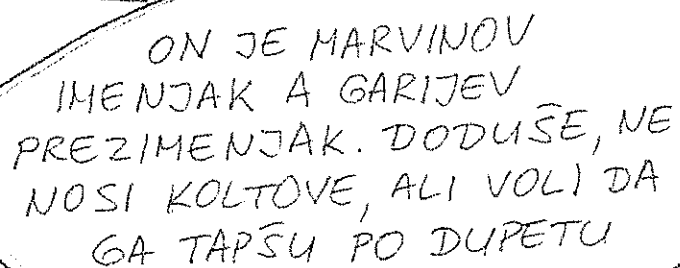 ON JE MARVINOV
IMENJAK A GARIJEV
PREZIMENJAK. DODUŠE, NE
NOSI KOLTOVE, ALI VOLI DA
GA TAPŠU PO DUPETU